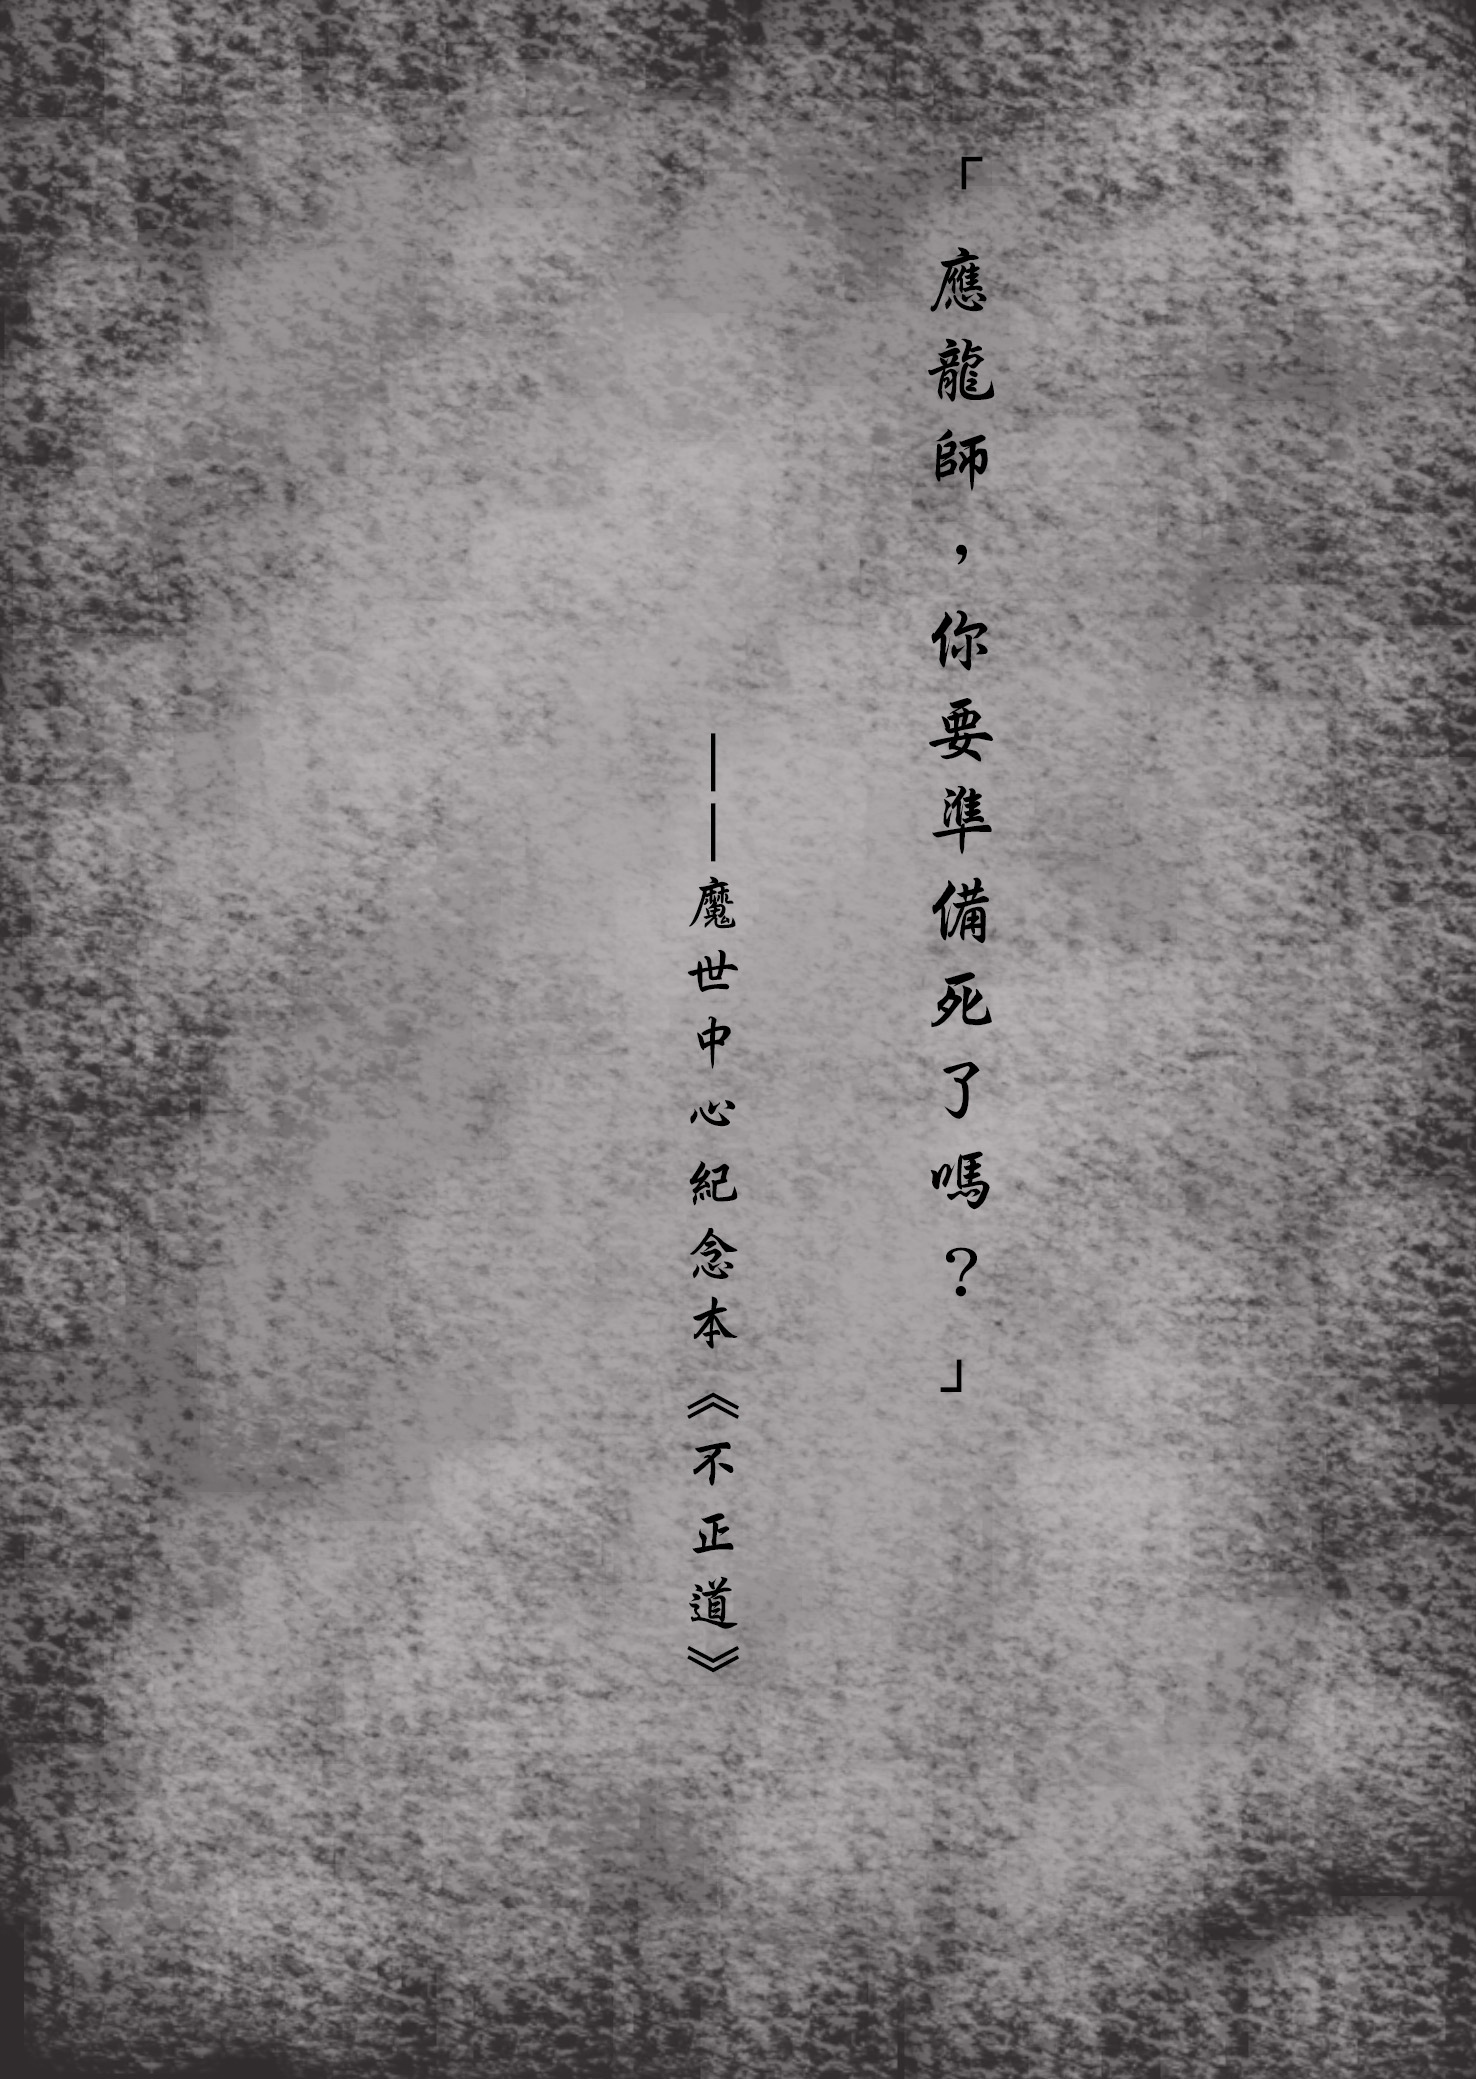 「應龍師，你要準備死了嗎？」
——魔世中心紀念本《不正道》